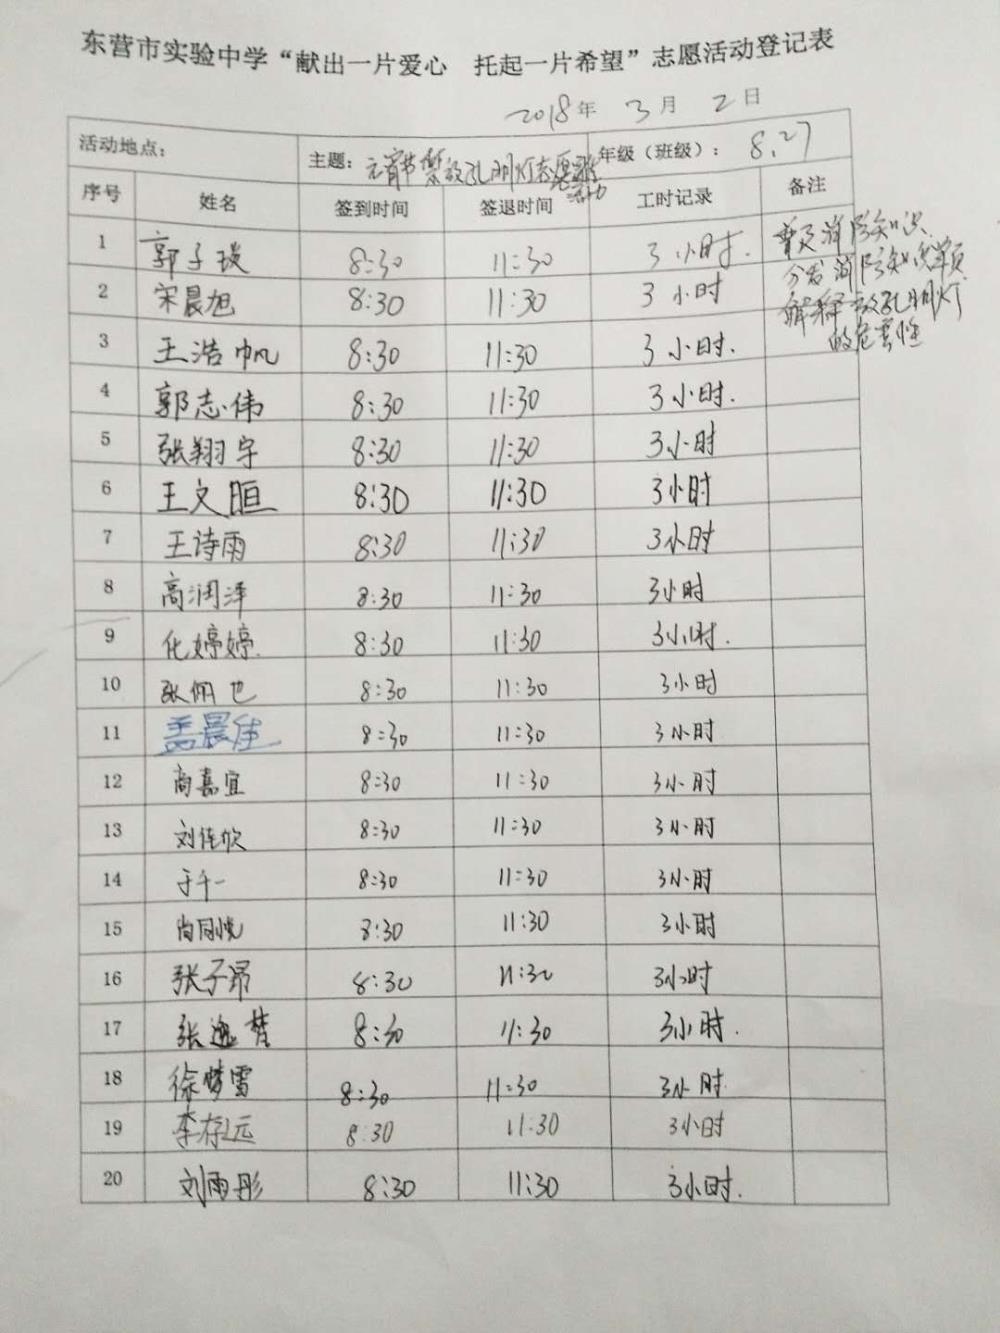 东营市实验中学“献出一片爱心　托起一片希望”志愿活动登记表
2018年 3月 2日
活动地点： 主题：元宵节禁放孔明灯志愿 活动 年级（班级）：8.27
序号 姓名 签到时间 签退时间 工时记录 备注
1 郭子瑛 8:30 11:30 3小时. 普及消防知识.
2 宋晨旭 8:30 11:30 3小时 分发消防知识单页
3 王浩帆 8:30 11:30 3小时. 解释放孔明灯
的危害性
4 郭志伟 8:30 11:30 3小时.
5 张翔宇 8:30 11:30 3小时
6 王文晅 8:30 11:30 3小时
7 王诗雨 8:30 11:30 3小时
8 高润泽 8:30 11:30 3小时
9 化婷婷. 8:30 11:30 3小时.
10 张佩也 8:30 11:30 3小时
11 孟晨佳 8:30 11:30 3小时
12 商嘉宜 8:30 11:30 3小时
13 刘佳欣 8:30 11:30 3小时
14 于千一 8:30 11:30 3小时
15 尚同悦 8:30 11:30 3小时
16 张子昂 8:30 11:30 3小时
17 张逸 8:30 11:30 3小时.
18 徐梦雪 8:30 11:30 3小时
19 李存远 8:30 11:30 3小时
20 刘雨彤 8:30 11:30 3小时.